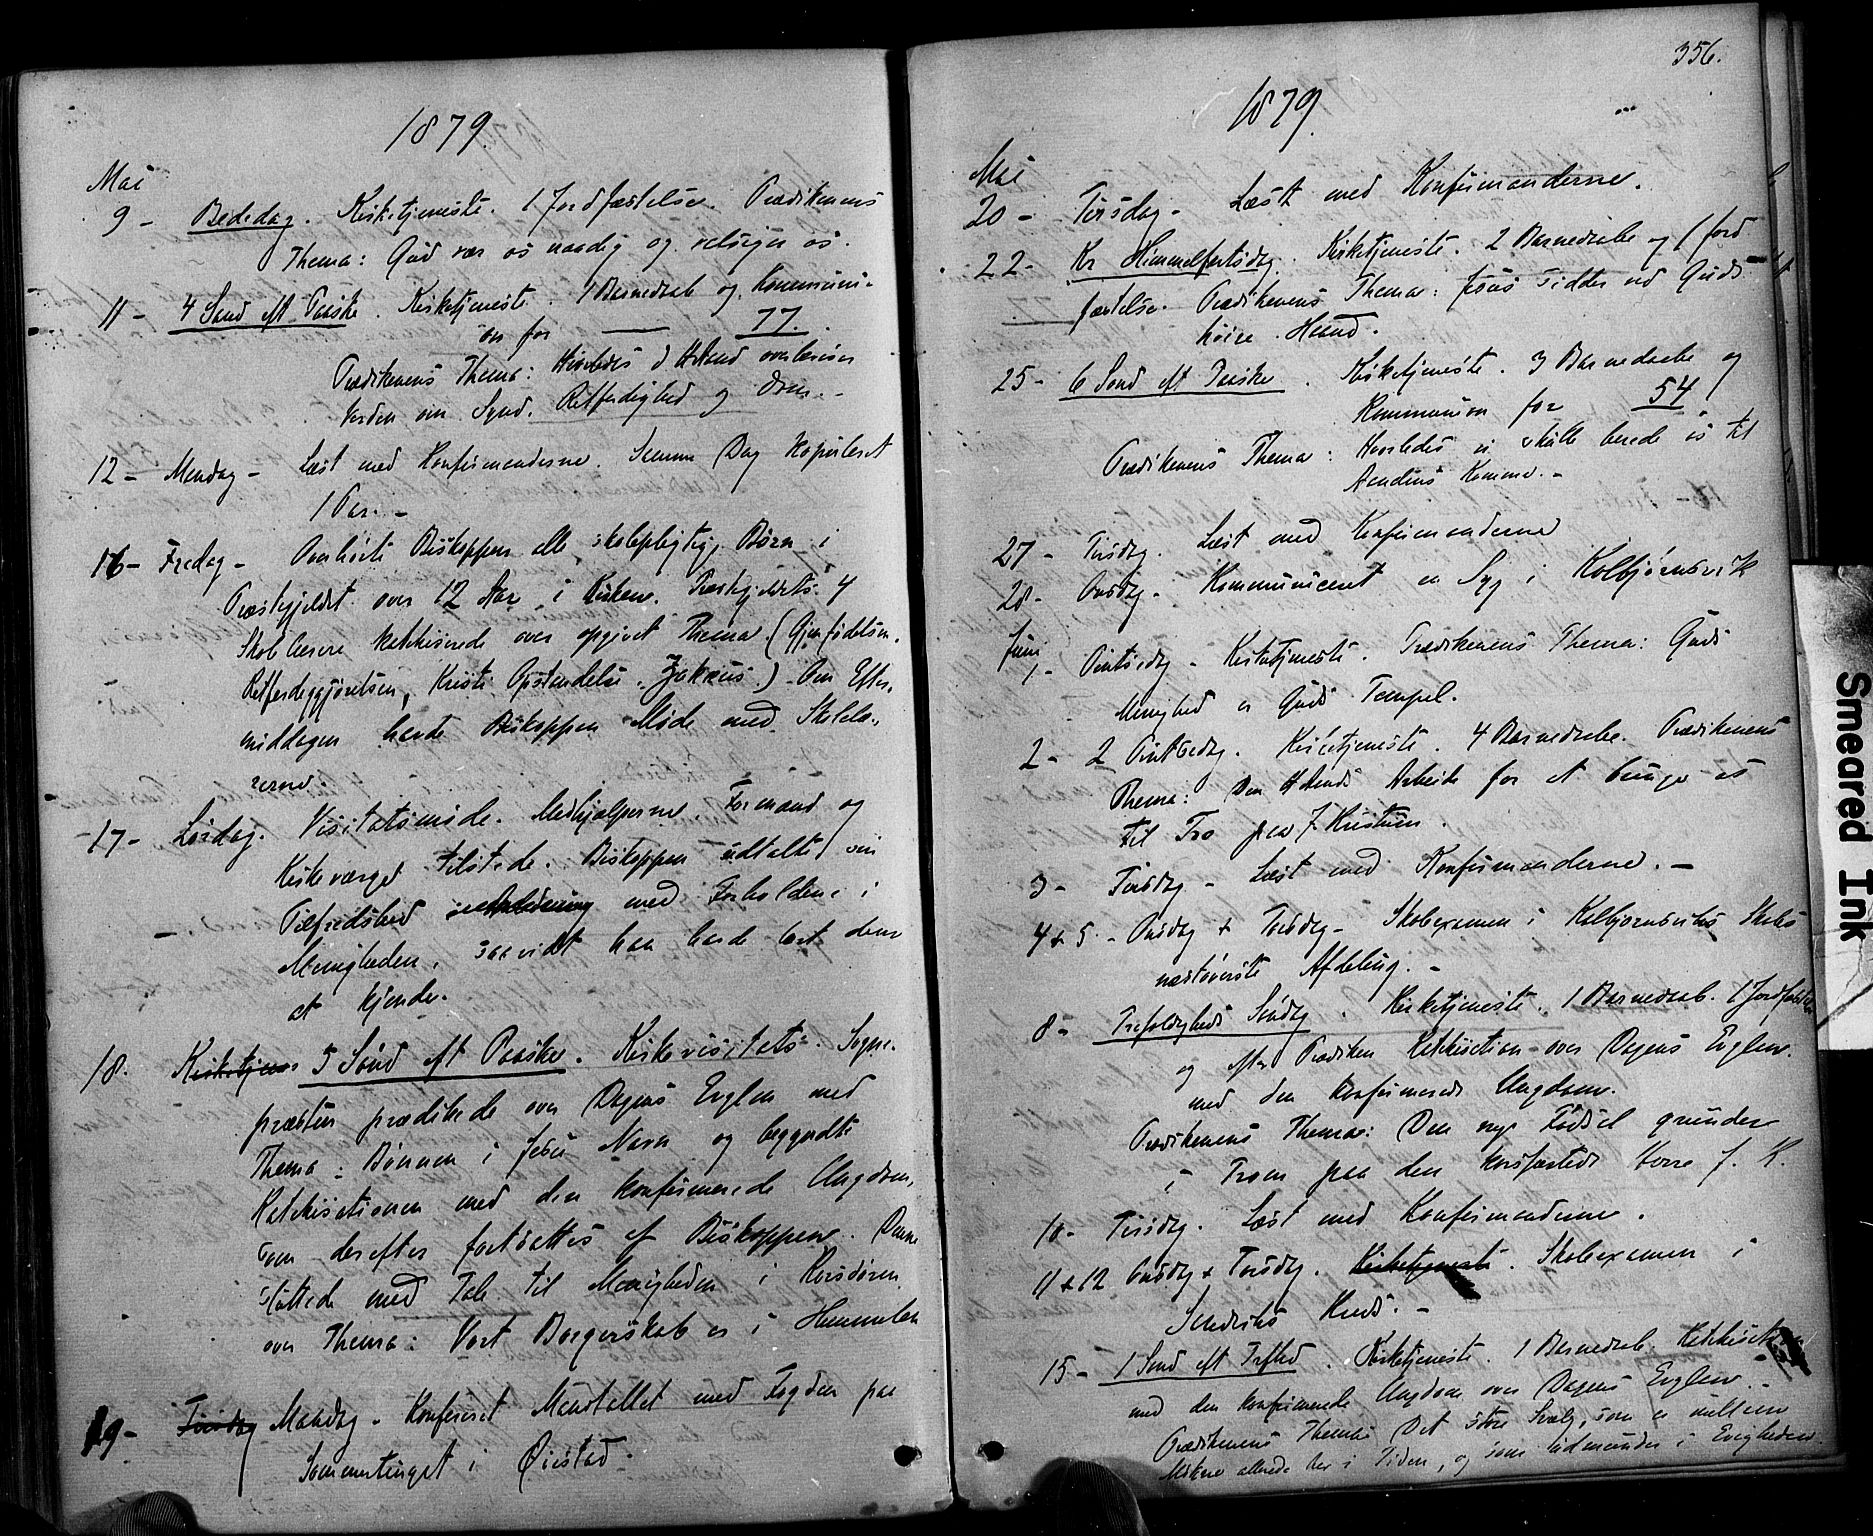 1879.
Mai
9 - Bededag. Kirketjeneste. 1 Jordfæstelse. Prædikenens
Thema: Gud vær os naadig og velsigne os.
11 - 4 Sønd eft Paaske. Kirketjeneste. 1 Barnedaab og Kommuni-
on for — 77.
Prædikenens Thema: Hvorledes d H Aand overbeviser
Verden om Synd, Retferdighed og Dom.-
12 - Mandag - Læst med Konfirmanderne. Samme Dag kopuleret
1 Par. -
16 - Fredag - Overhørte Biskoppen alle skolepligtige Børn i
Præstegjeldet over 12 Aar i Kirken. Præstegjeldets 4
Skolelærere katekiserede over opgivet Thema. (Gjenfødelsen,
Retferdiggjørelsen, Kristi Opstandelse, Zakæus.) - Om Efter-
middagen havde Biskoppen Møde med Skolelæ-
rerne.
17 - Lørdag. Visitatsmøde. Medhjælperne Formænd og
Kirkeværget tilstede. Biskoppen udtalte sin
Tilfredshed med Forholdene i
Menigheden, saavidt han havde lært dem
at kjende.
18. Kirketjenes 5 Sønd eft Paaske. Kirkevisitats. Sogne-
præsten prædikede over Dagens Evglm med
Thema: Bønnen i Jesu Navn og begyndte
Katekisationen med den konfirmerede Ungdom,
som derefter fortsattes af Biskoppen. Denne
sluttede med Tale til Menigheden i Korsdøren
over Thema: Vort Borgerskab er i Himmelen
19 - Tirsdag Mandag. Konfereret Mandtallet med Fogden paa
Sommertinget i Øiestad.
356.
1879.
Mai
20 - Tirsdag - Læst med Konfirmanderne.
22 - Kr Himmelfartsdag. Kirketjeneste. 2 Barnedaabe og 1 Jord-
fæstelse. Prædikenens Thema: Jesus sidder ved Guds
høire Haand.
25 - 6 Sønd eft Paaske. Kirketjeneste. 3 Barnedaabe og
Kommunion for 54
Prædikenens Thema: Hvorledes vi skulle berede os til
Aandens Komme. -
27 - Tirsdag. Læst med Konfirmanderne
28 - Onsdag. Kommuniceret en Syg i Kolbjørnsvik
Juni
1 - Pintsedag - Kirketjeneste. Prædikenens Thema: Guds
Menighed er Guds Tempel.
2 - 2 Pintsedag. Kirketjeneste. 4 Barnedaabe. Prædikenens
Thema: Den H Aands Arbeide for at bringe os
til Tro paa J Kristum.
3 - Tirsdag - Læst med Konfirmanderne. -
4 & 5 - Onsdag & Torsdag - Skoleexamen i Kolbjørnsviks Skoles
næstøverste Afdeling. -
8 - Trefoldigheds Søndag. Kirketjeneste. 1 Barnedaab. 1 Jordfæstelse
og efter Prædiken Katekisation over Dagens Evglm.
med den konfirmerede Ungdom.
Prædikenens Thema: Den nye Fødsel grundes
i Troen paa den korsfæstede Herre J. K.
10 - Tirsdag. Læst med Konfirmanderne.
11 & 12 Onsdag & Torsdag. Kirketjeneste. Skoleexamen i
Kreds. -
15 - 1 Sønd eft Trefhed. Kirketjeneste. 1 Barnedaab. Katekisation
med den konfirmerede Ungdom over Dagens Evglm. -
Prædikenens Thema: Det store Svælg, som er mellem
allerede her i Tiden, og som udmunder i Evigheden.
Smeared Ink